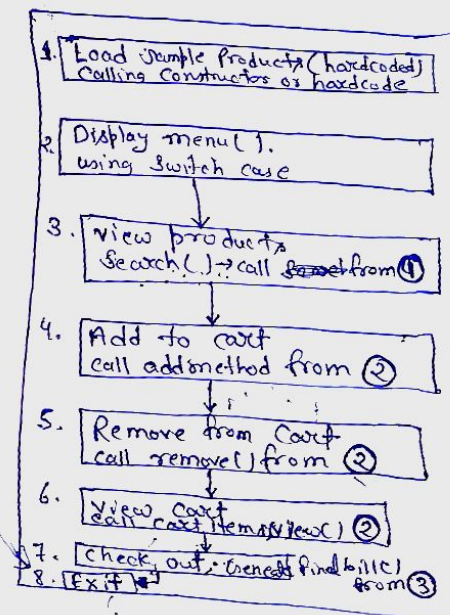 1. Load Sample Products (hardcoded)
Calling Constructor or hardcode
2. Display menu().
using Switch case
3. View products
Search() → call from ①
4. Add to cart
call addmethod from ②
5. Remove from Cart
call remove() from ②
6. View Cart
call cart items view() ②
7. Check out, final bill()
from ③
8. Exit